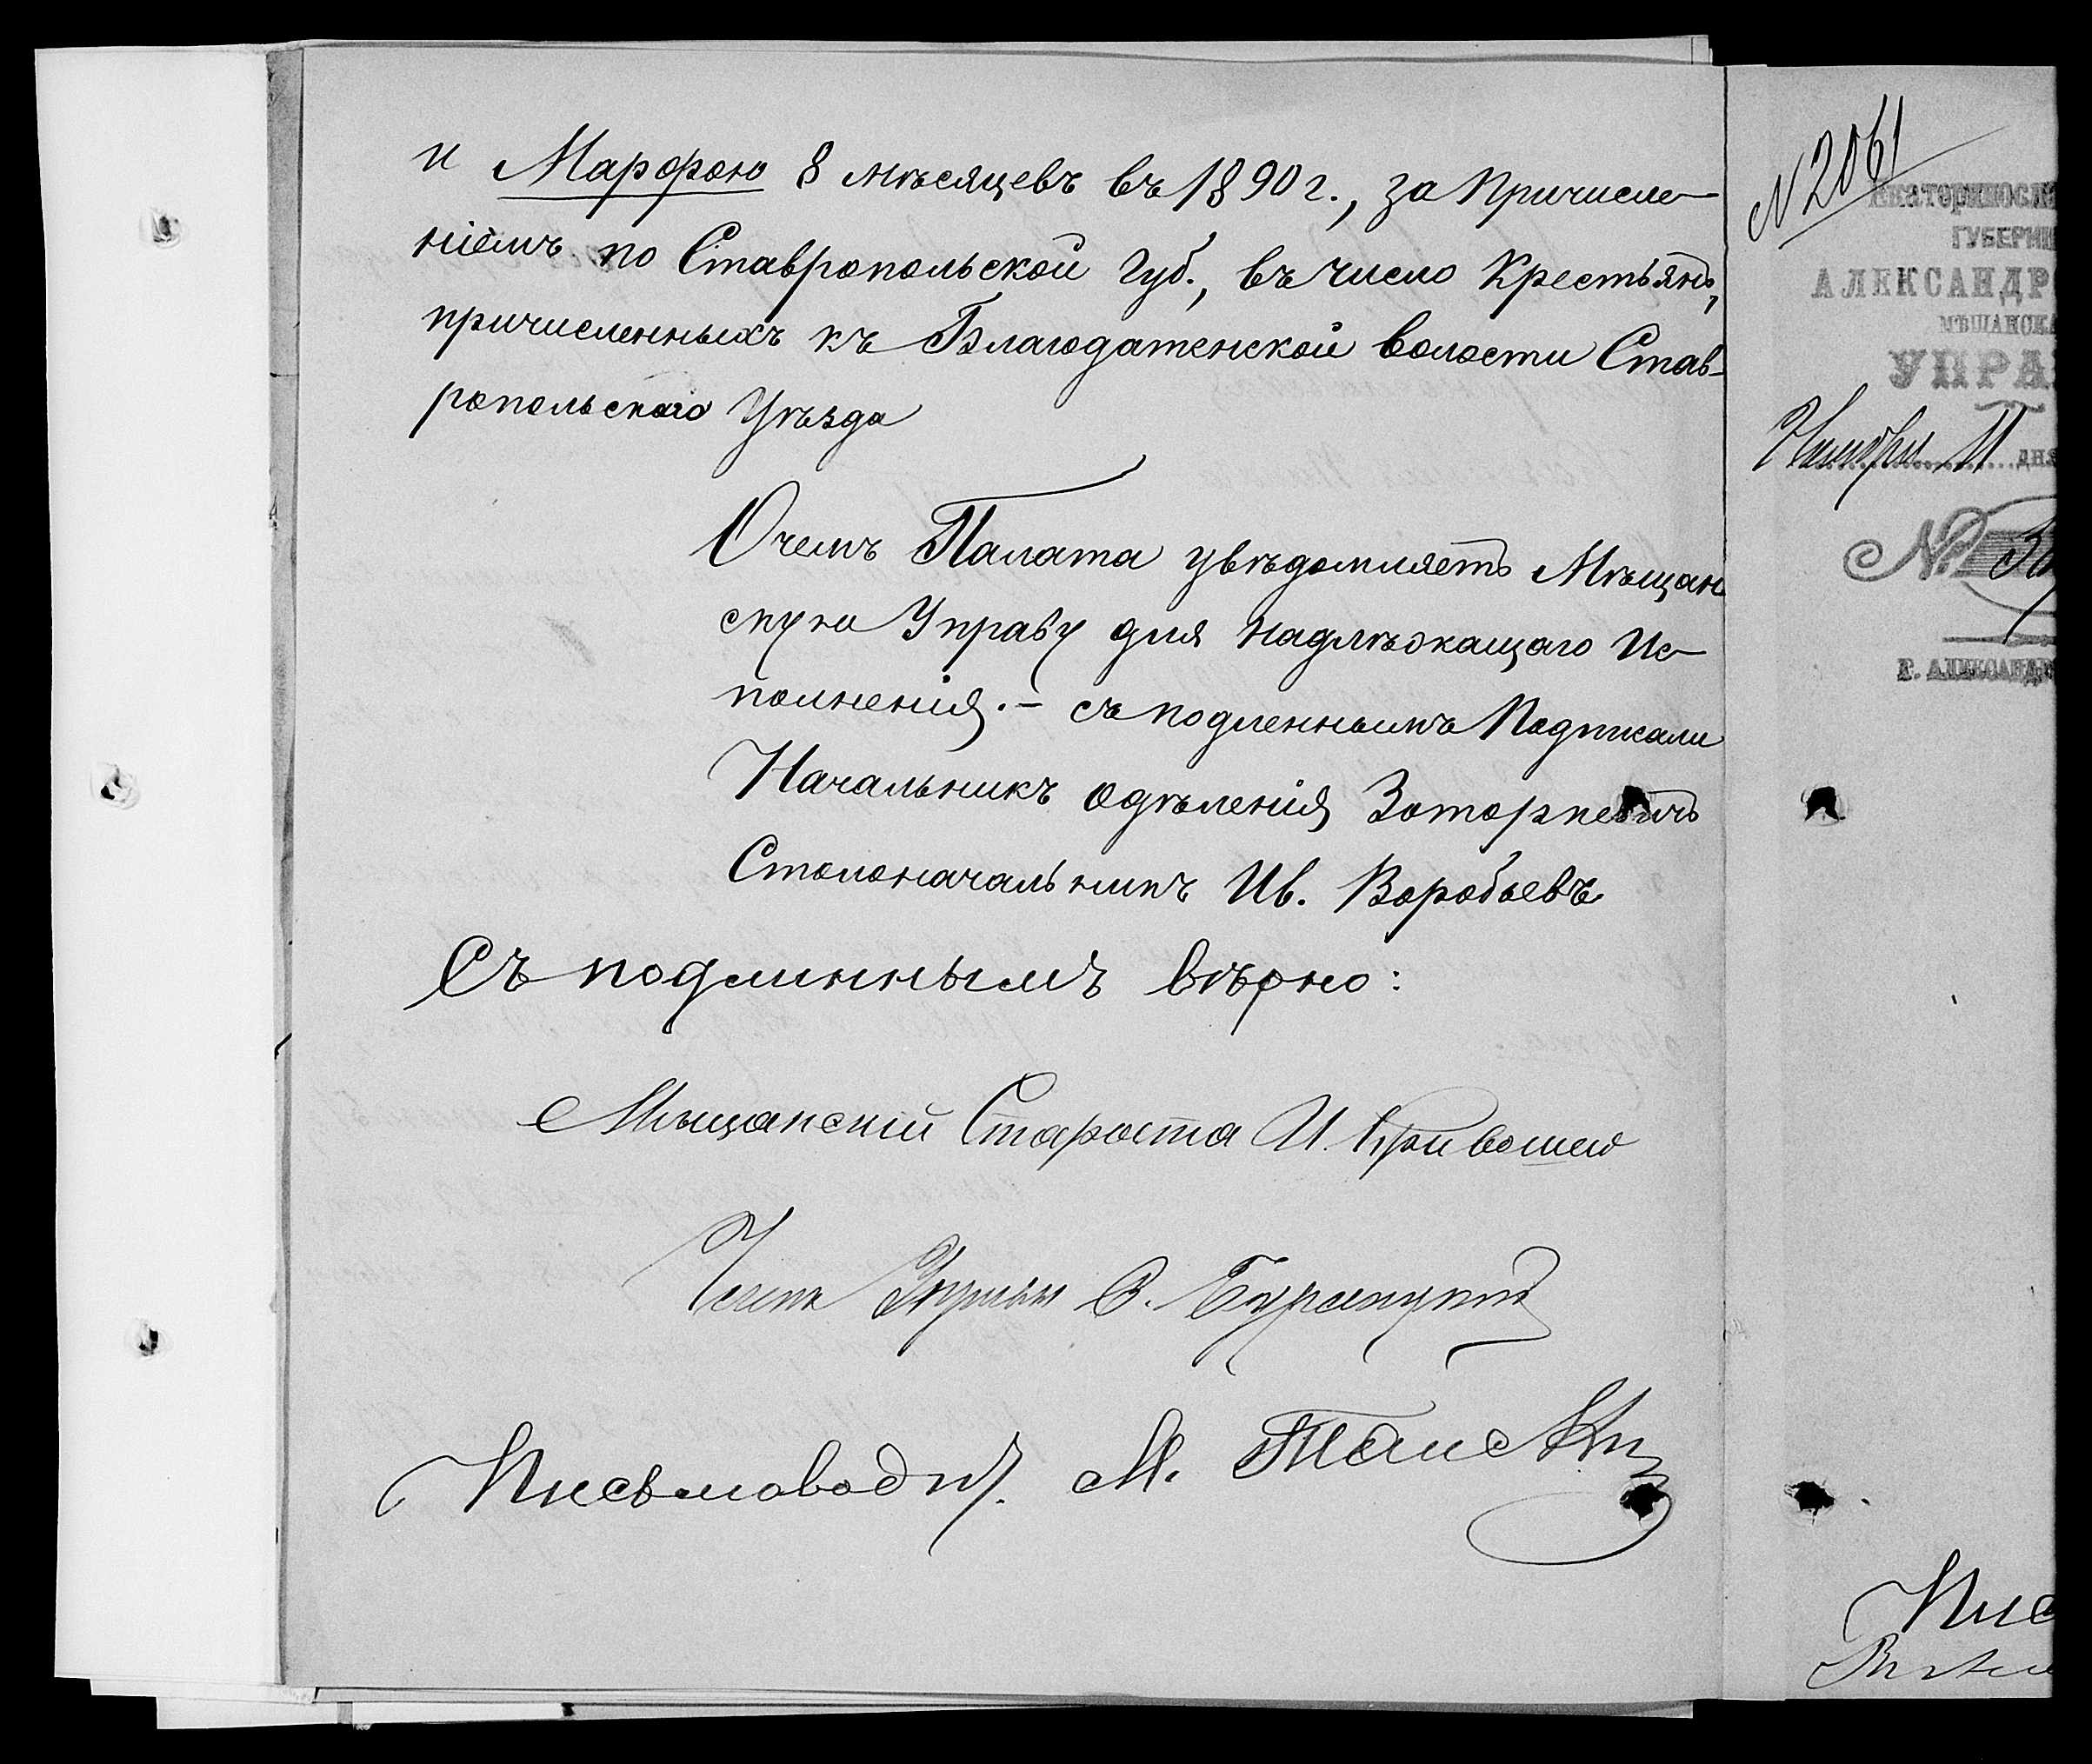 и Марфою 8 мѣсяцевъ въ 1890 г., за Причисле-
ніемъ по Ставропольской Губ., въ число Крестьянъ,
причисленныхъ къ Благодатенской волости Став-
ропольскаго Уѣзда
О чемъ Палата увѣдомляетъ Мѣщан
скую Управу для надлѣжащаго Ис-
полненія. – съ подленнымъ Подписали
Начальникъ одѣленія
Столоначальникъ Ив. Воробьевъ
Съ подлиннымъ вѣрно:
Мѣщанскій Староста И. Кривошей
Членъ Управы
Письмоводит. М.
N 2061
ЕКАТЕРИНОСЛ
ГУБЕРНІ
АЛЕКСАНДР
МѢЩАНСКА
УПРА
Ноября 11 дня
№
Г. АЛЕКСАНД
Пис